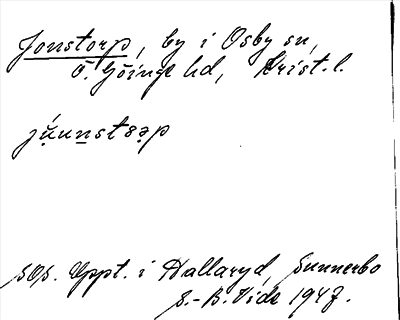 Jonstorp, by i Osby sn,
Ö. Göinge hd, Krist. l.
sop. Uppt. i Hallaryd, Sunnerbo
S.-B. Vide 1947.